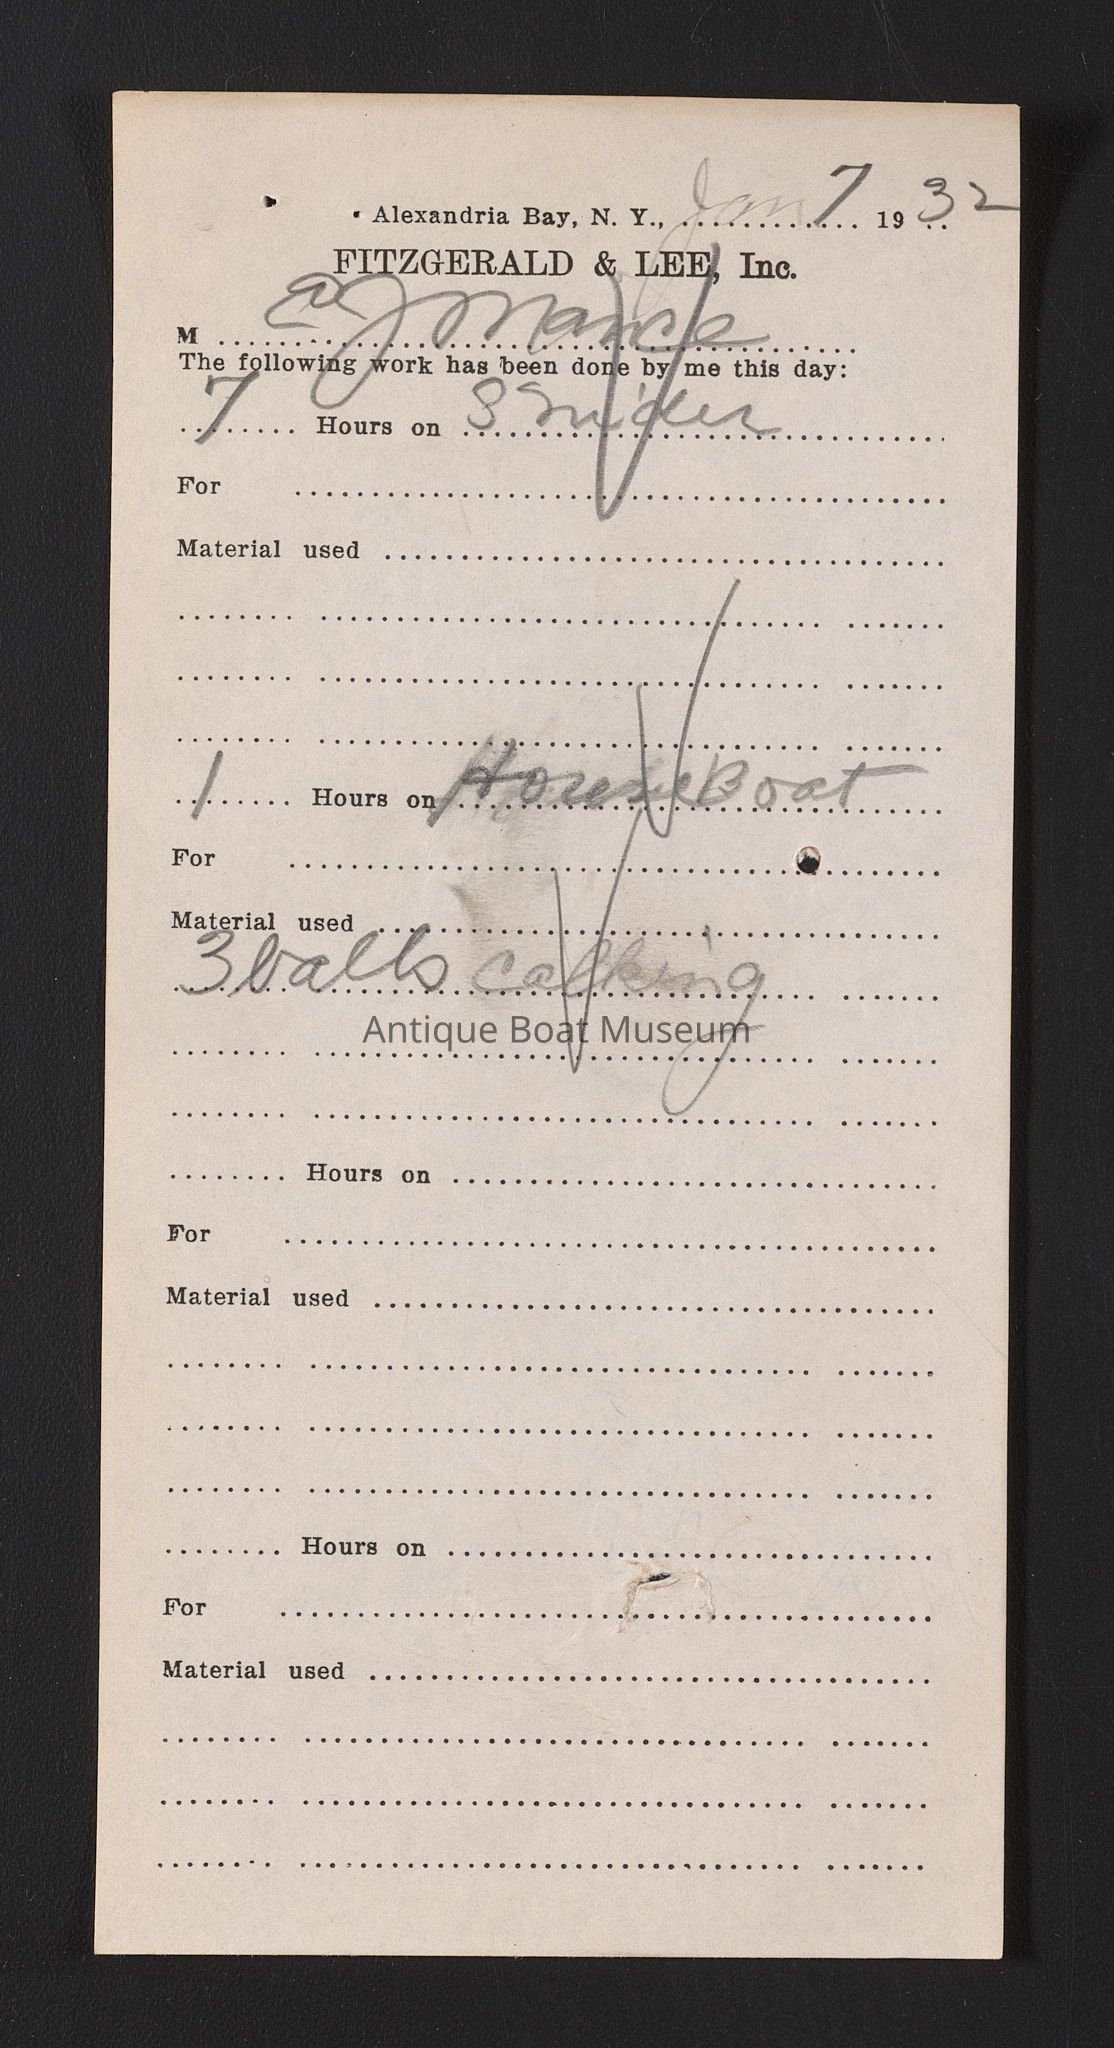 Alexandria Bay, N. Y., Jan 7 1932
FITZGERALD & LEE, Inc.
M
The following work has been done by me this day:
7 Hours on Snider
For
Material used
1 Hours on House Boat
For
Material used
3 balls calking
Antique Boat Museum
Hours on
For
Material used
Hours on
For
Material used